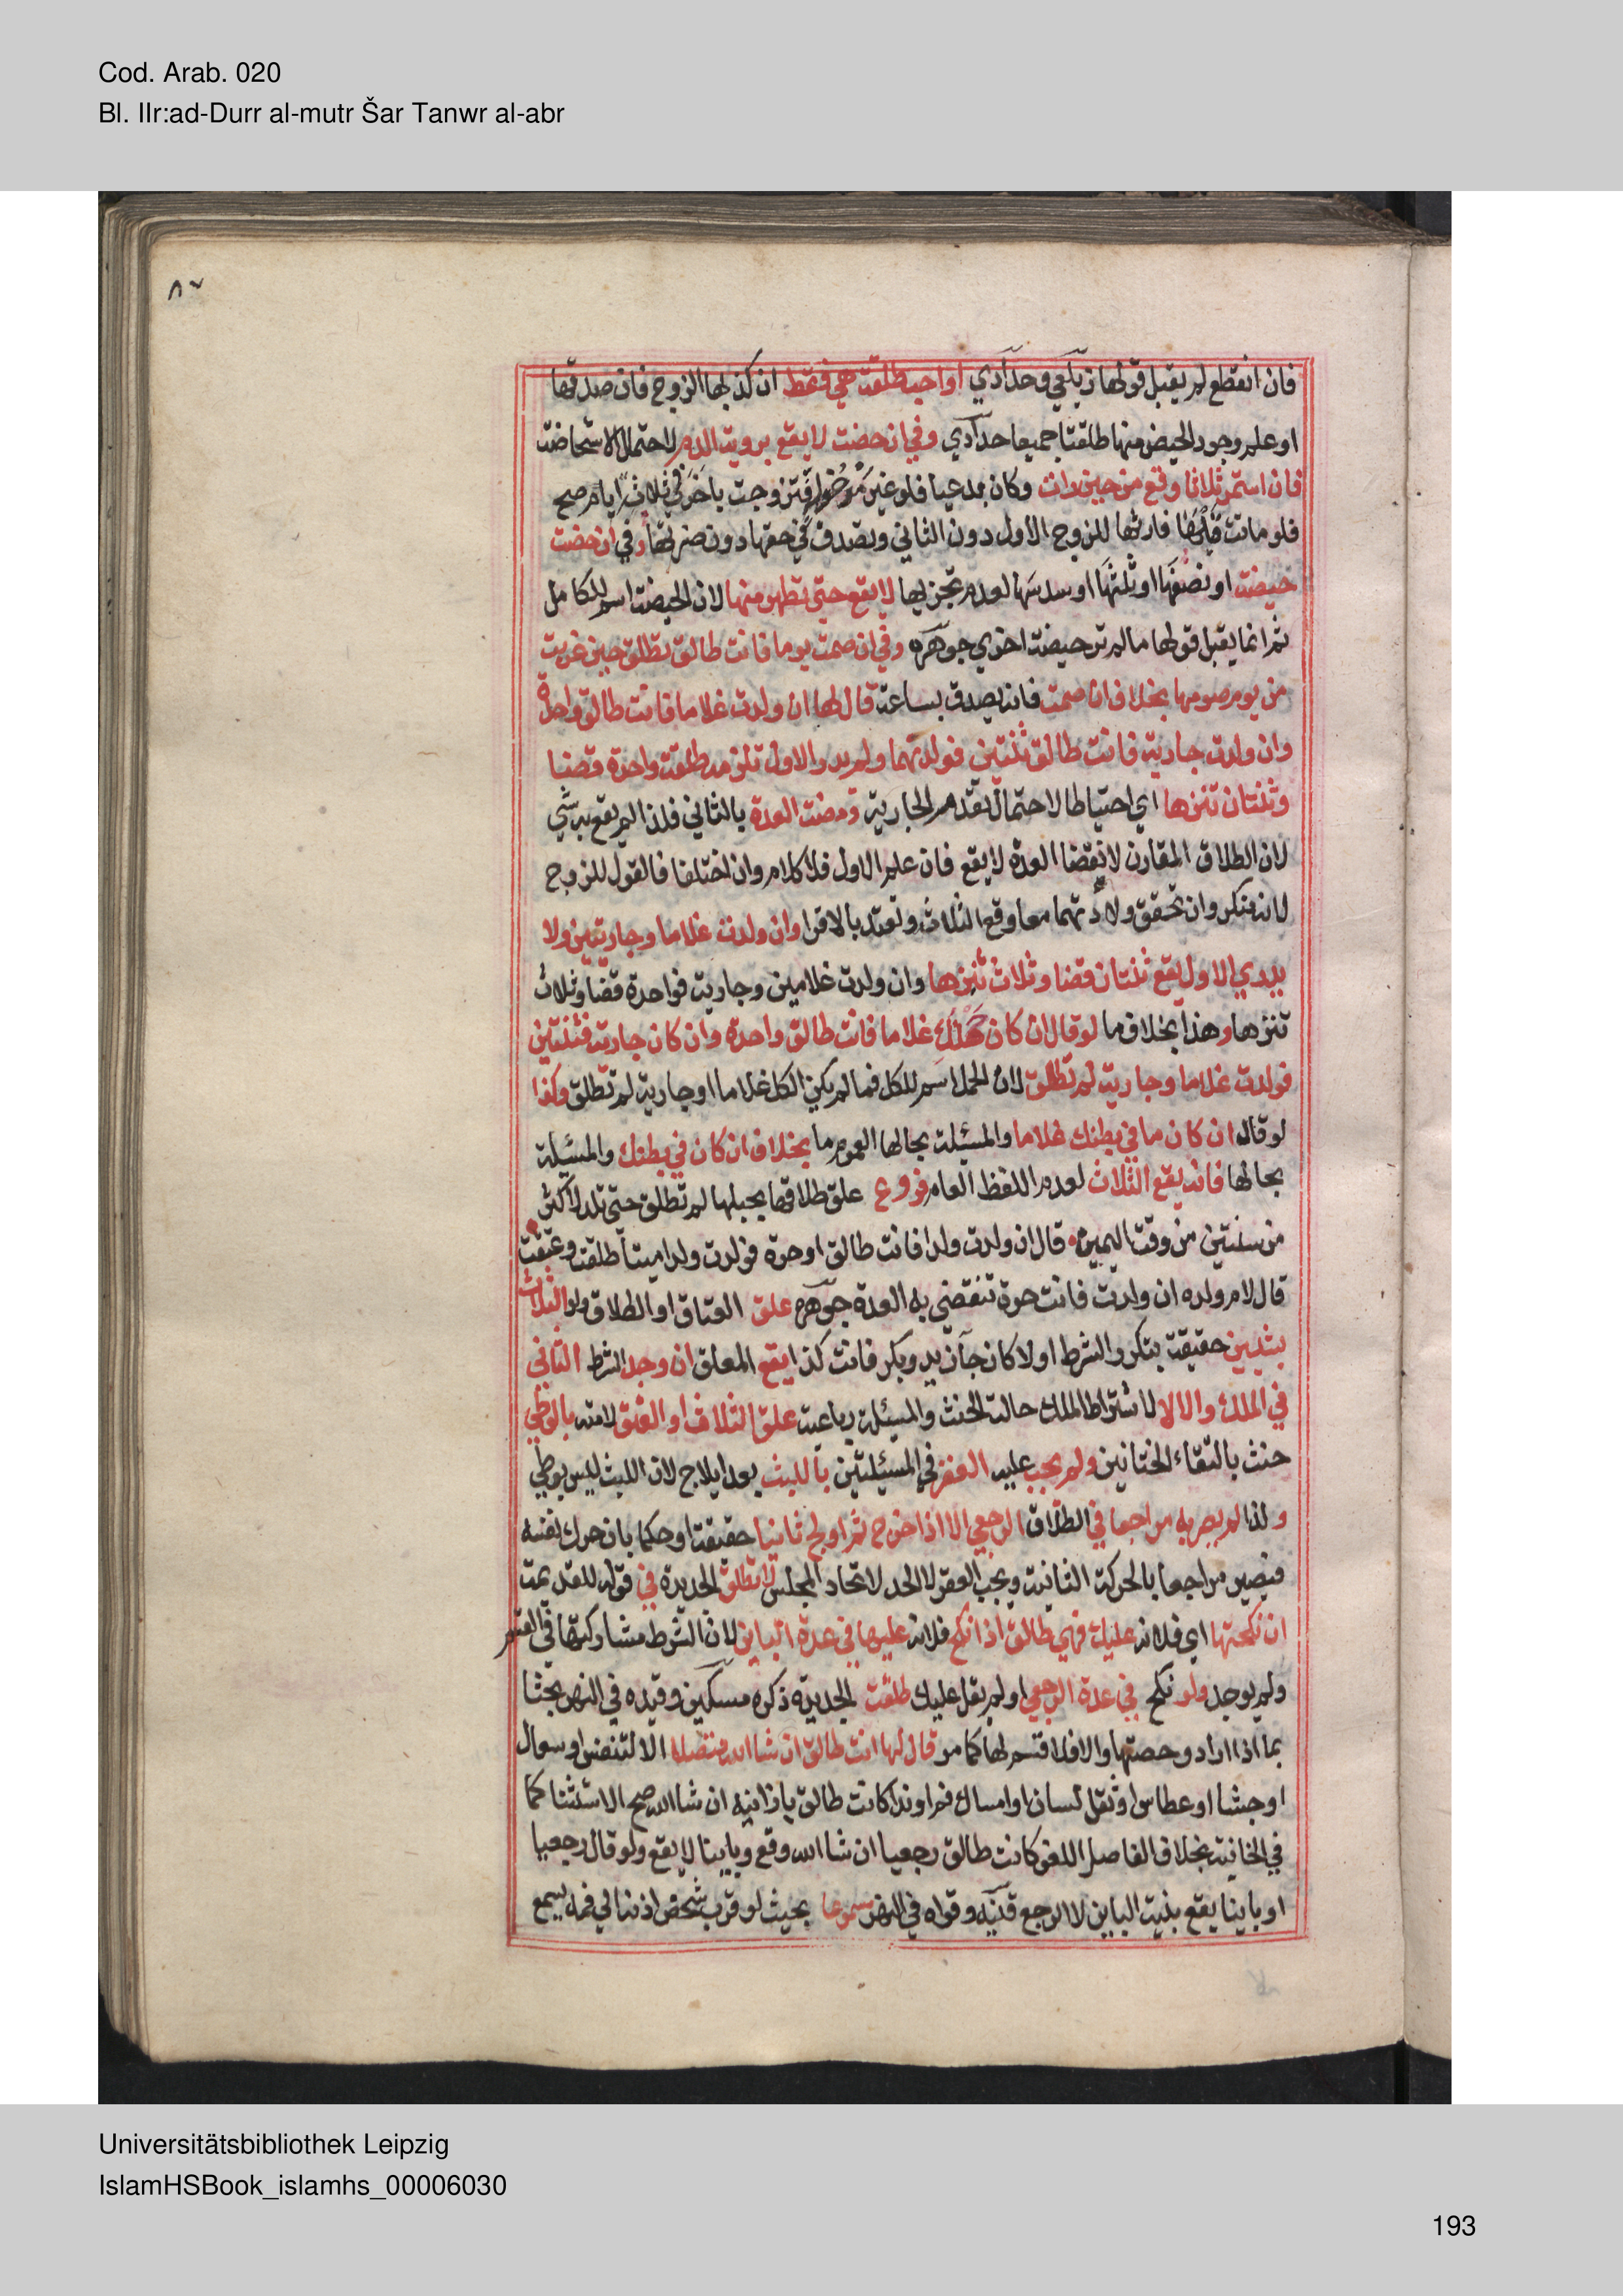 Cod. Arab. 020
Bl. IIr:ad-Durr al-mutr Šar Tanwr al-abr
٨٧
فان انقطع لم يقبل قولها زيلعي وحدادي اواحب طلقت هي فقط ان كذبها الزوج فان صدقها
او علم وجود الحيض منها طلقتا جميعا حدادي وفي ان حضت لا يقع برويت الدم لاحتمال الاستحاضت
فان استمر ثلاثا وقع من حين رات وكان بدعيا فلو غير مدخولة فتزوجت باخر في ثلاث ايام صح
فلو ماتت فيها فارثها للزوج الاول دون الثاني وتصدق في حقها دون ضرتها وفي ان حضت
حيضت او نصفها او ثلثها او سدسها لعدم تجزيها لا يقع حتى تطهر منها لان الحيضت اسم للكامل
ثم انما يقبل قولها ما لم تر حيضت اخري جوهره وفي ان صمت يوما فانت طالق تطلق حين غربت
من يوم صومها بخلاف ان صمت فانه يصدق بساعة قال لها ان ولدت غلاما فانت طالق واحدة
وان ولدت جارية فانت طالق ثنتين فولدتهما ولم يدر الاول تلزمه طلقت واحدة قضا
وثنتان تنزها اي احتياطا لاحتمال تقدم الجارية ومضت العدة بالثاني فلذا لم يقع به شي
لان الطلاق المقارن لانقضا العدة لا يقع فان علم الاول فلا كلام وان اختلفا فالقول للزوج
لانه منكر وان تحقق ولادتهما معا وقع الثلاث وتعتد بالاقرا وان ولدت غلاما وجاريتين ولا
يدري الاول يقع ثنتان قضا وثلاث تنزها وان ولدت غلامين وجاريت فواحدة قضا وثلاث
تنزها وهذا بخلاف ما لو قال ان كان حملك غلاما فانت طالق واحدة وان كان جاريت فثنتين
فولدت غلاما وجارية لم تطلق لان الحمل اسم للكل فما لم يكن الكل غلاما او جارية لم تطلق وكذا
لو قال ان كان ما في بطنك غلاما والمسئلة بحالها لعموم ما بخلاف ان كان في بطنك والمسئلة
بحالها فانه يقع الثلاث لعدم اللفظ العام فروع علق طلاقها بحبلها لم تطلق حتى تلد لاكثر
من سنتين من وقت اليمين قال ان ولدت ولدا فانت طالق او حرة فولدت ولدا ميتا طلقت وعتقت
قال لام ولده ان ولدت فانت حرة تنقضي به العدة جوهره علق العتاق او الطلاق ولو الثلاث
بشيين حقيقة بتكرر الشرط او لا كان جا زيد وبكر فانت كذا يقع المعلق ان وجد الشرط الثاني
في الملك والا لا لاشتراط الملك حالت الحنث والمسئلة رباعية علق الثلاث او العتق لامته بالوطي
حنث بالتقاء الختانين ولم يجب عليه العقر في المسئلتين باللبث بعد ايلاج لان اللبث ليس بوطي
ولذا لم يصر به مراجعا في الطلاق الرجعي الا اذا اخرج ثم اولج ثانيا حقيقة او حكما بان حرك نفسه
فيصير مراجعا بالحركة الثانية ويجب العقر لا الحد لاتحاد المجلس لا تطلق الجديدة في قوله للقديمت
ان نكحتها اي فلانه عليك فهي طالق اذا نكح فلانه عليها في عدة الباين لان الشرط مشاركتها في القسم
ولم يوجد ولو نكح في عدة الرجعي او لم يقل عليك طلقت الجديدة ذكره مسكين وقيده في النهر بحثا
بما اذا اراد رجعتها والا فلا قسم لها كما مر قال لها انت طالق ان شا الله متصلا الا لتنفس او سعال
او جشا او عطاس او ثقل لسان او امساك فم او ندا كانت طالق يا زانيه ان شا الله صح الاستثنا كما
في الخانية بخلاف الفاصل اللغو كانت طالق رجعيا ان شا الله وقع وباينا لا يقع ولو قال رجعيا
او باينا يقع بنيت الباين لا الرجع قنيه وقواه في النهر مسموعا بحيث لو قرب شخص اذنه الي فمه يسمع
Universitätsbibliothek Leipzig
IslamHSBook_islamhs_00006030
193